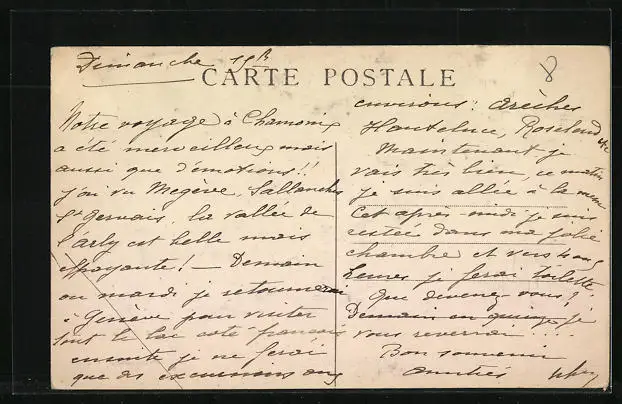 Dimanche
CARTE POSTALE
8
Notre voyage à Chamonix
a été merveilleux mais
aussi que d'émotions!!
j'ai vu Megève, Sallanches
St Gervais, la vallée de
l'arly est belle mais
effrayante! — Demain
ou mardi je retournerai
à Genève pour visiter
tout le lac coté français
ensuite je ne ferai
que des excursions aux
environs: arêches
Hauteluce, Roselend etc
Maintenant je
vais très bien, ce matin
je suis allée à la messe
Cet après-midi je suis
restée dans ma jolie
chambre et vers 4
heures je ferai toilette.
Que devenez-vous?
Demain en quinze je
vous reverrai!...
Bon souvenir
amitiés